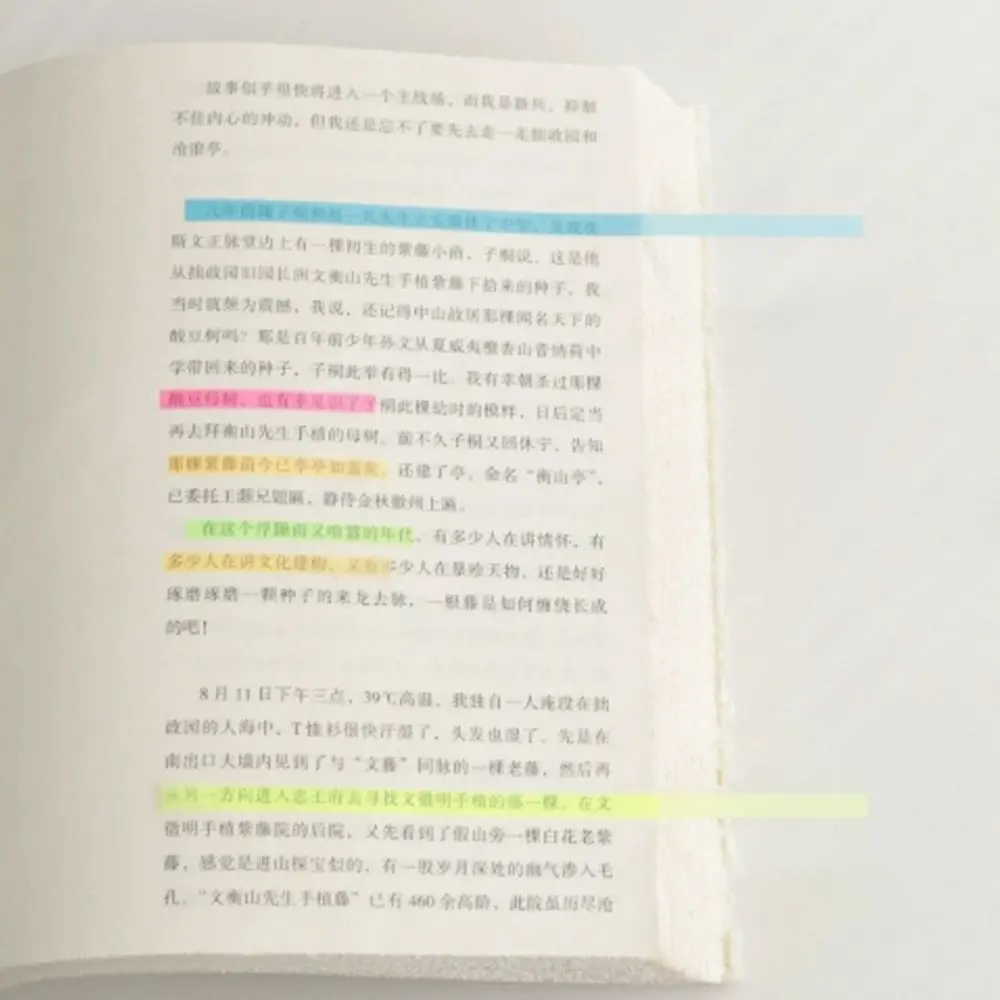 故事似乎很快将进入一个主战场，而我是新兵，抑制
不住内心的冲动，但我还是忘不了要先去走一走拙政园和
沧浪亭。
斯文正脉堂边上有一棵初生的紫藤小苗，子桐说，这是他
从拙政园旧园长洲文衡山先生手植紫藤下拾来的种子，我
当时就颇为震撼，我说，还记得中山故居那棵闻名天下的
酸豆树吗？那是百年前少年孙文从夏威夷檀香山普纳荷中
学带回来的种子，子桐此举有得一比。我有幸朝圣过那棵
酸豆母树，也有幸见识了子桐此棵幼时的模样，日后定当
再去拜衡山先生手植的母树。前不久子桐又回休宁，告知
那棵紫藤苗今已亭亭如盖院，还建了亭，命名“衡山亭”，
已委托王灏兄题匾，静待金秋徽州上匾。
在这个浮躁而又喧嚣的年代，有多少人在讲情怀，有
多少人在讲文化建构，又有多少人在暴殄天物，还是好好
琢磨琢磨一颗种子的来龙去脉，一根藤是如何缠绕长成
的吧！
8月11日下午三点，39℃高温，我独自一人淹没在拙
政园的人海中，T恤衫很快汗湿了，头发也湿了。先是在
南出口大墙内见到了与“文藤”同脉的一棵老藤，然后再
从另一方向进入忠王府去寻找文徵明手植的那一棵。在文
徵明手植紫藤院的后院，又先看到了假山旁一棵白花老紫
藤，感觉是进山探宝似的，有一股岁月深处的幽气渗入毛
孔。“文衡山先生手植藤”已有460余高龄，此院虽历尽沧